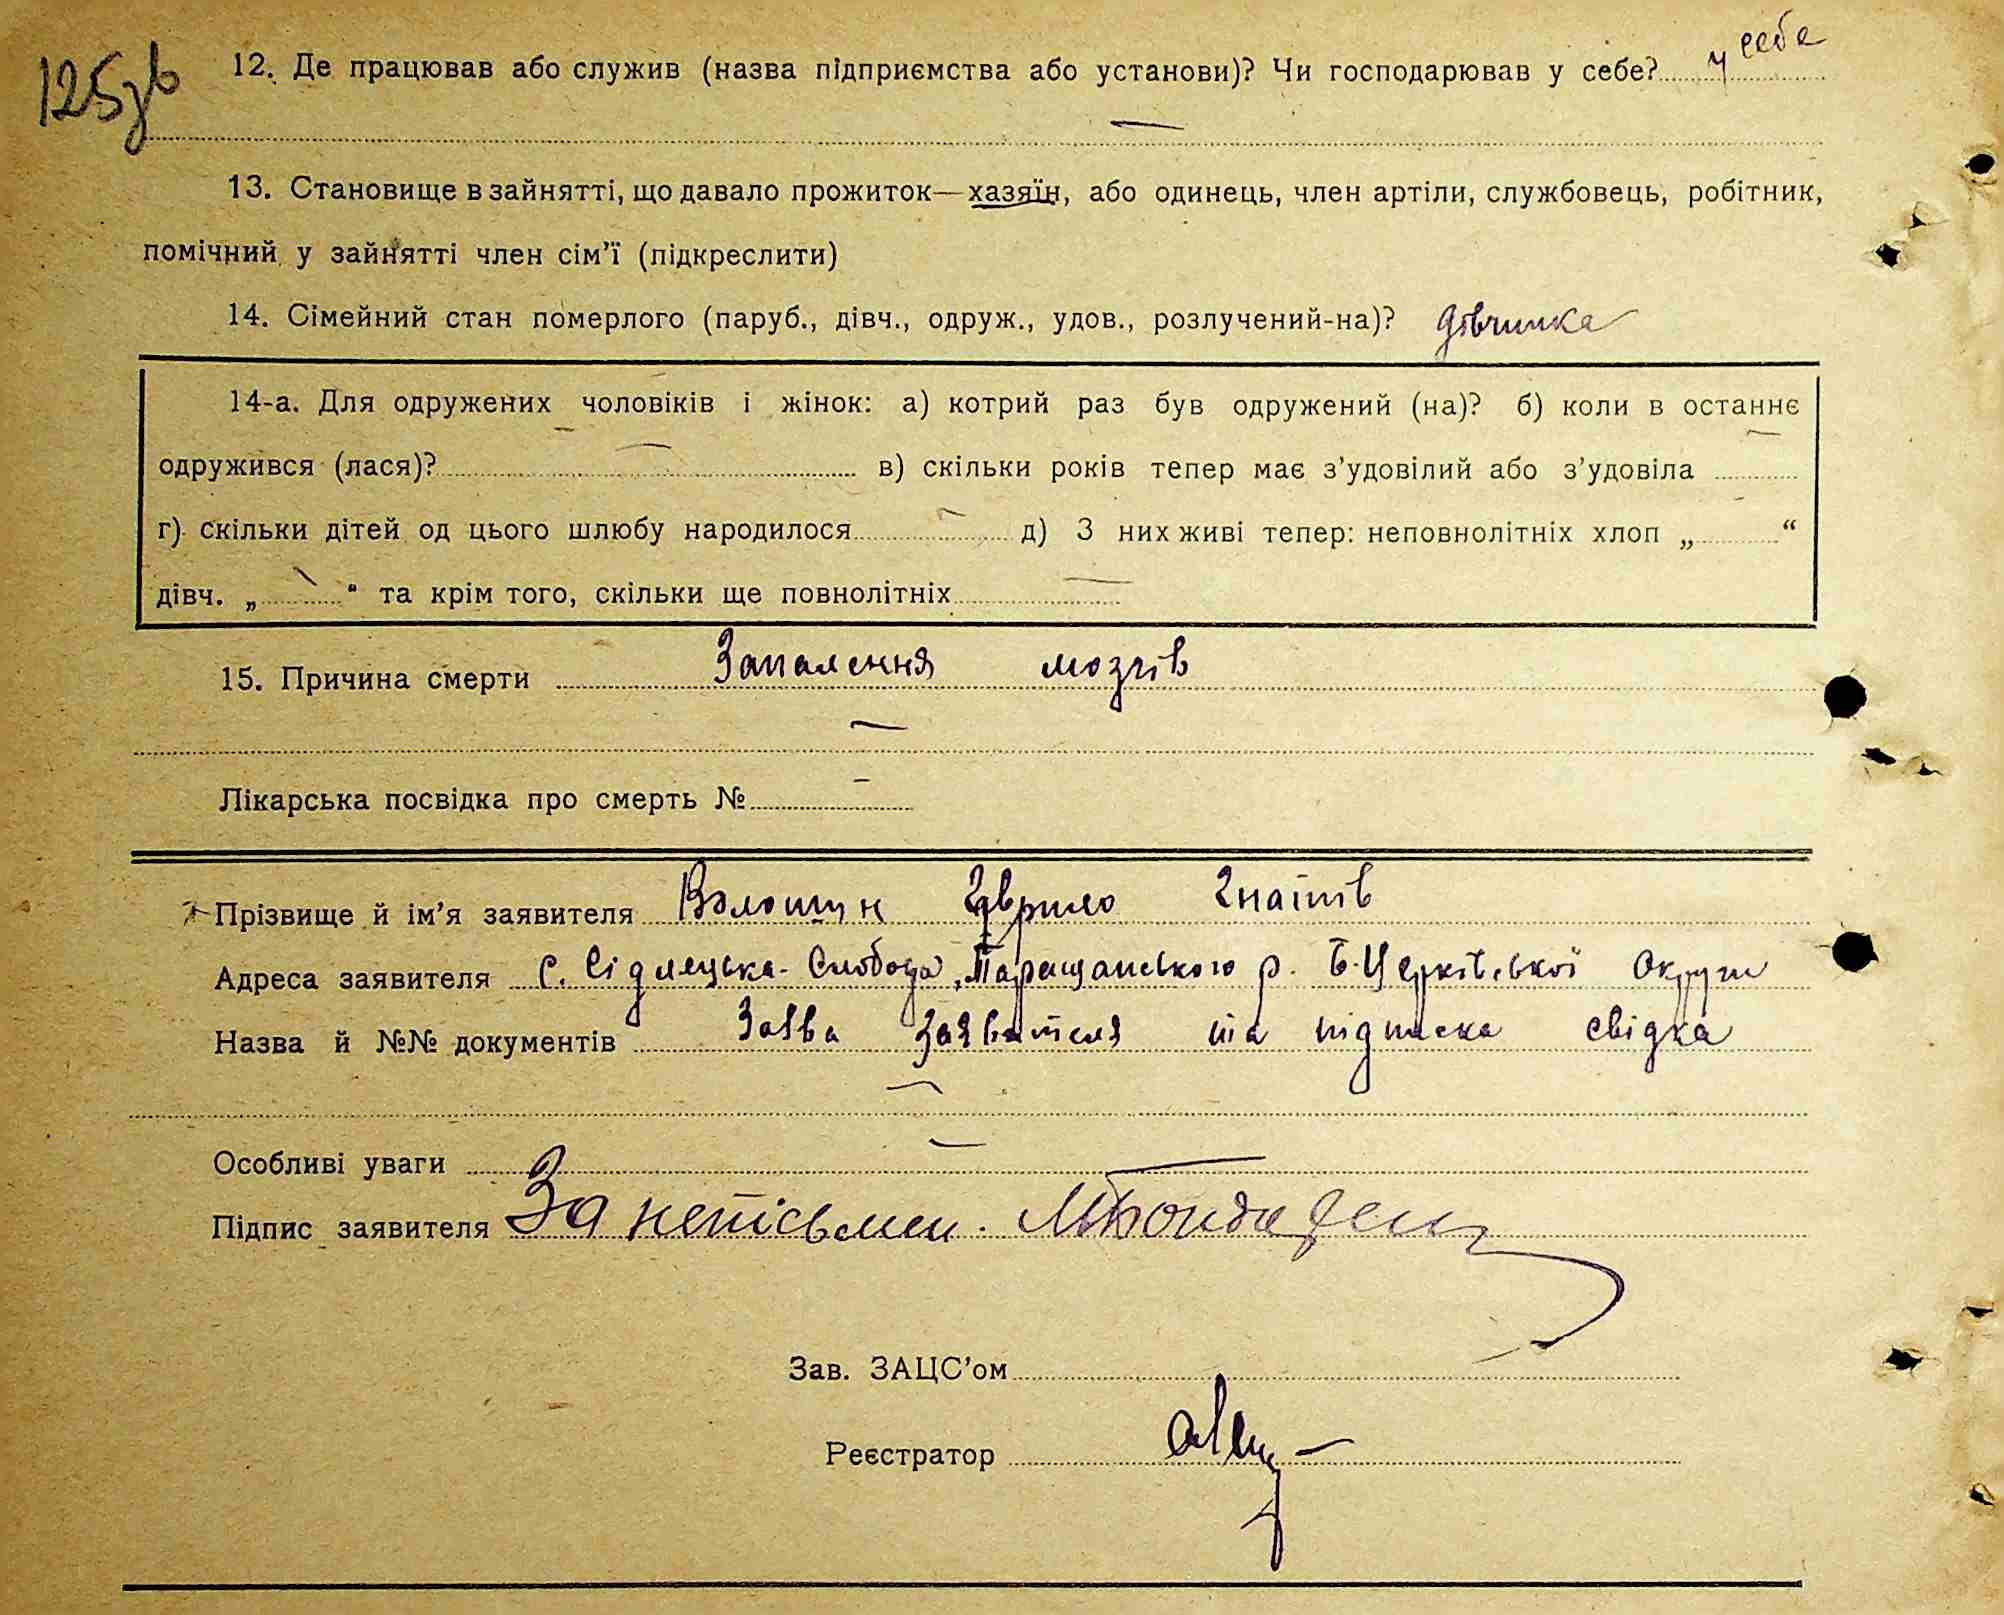 125зв
12. Де працював або служив (назва підприємства або установи)? Чи господарював у себе? у себе
13. Становище в зайнятті, що давало прожиток—хазяїн, або одинець, член артіли, службовець, робітник,
помічний у зайнятті член сім’ї (підкреслити)
14. Сімейний стан померлого (паруб., дівч., одруж., удов., розлучений-на)? дівчинка
14-а. Для одружених чоловіків і жінок: а) котрий раз був одружений (на)? б) коли в останнє
одружився (лася)? в) скільки років тепер має з’удовілий або з’удовіла
г) скільки дітей од цього шлюбу народилося д) З них живі тепер: неповнолітніх хлоп „ “
дівч. „ “ та крім того, скільки ще повнолітніх
15. Причина смерти Запалення мозгів
Лікарська посвідка про смерть №
Прізвище й ім’я заявителя Волошин Гаврило Гнатів
Адреса заявителя с. Сідлецька-Слобода, Таращанського р. Б-Церківської Округи
Назва й №№ документів Заява Заявителя та підписка свідка
Особливі уваги
Підпис заявителя За непісьмен. Бондаренк
Зав. ЗАЦС’ом
Реєстратор